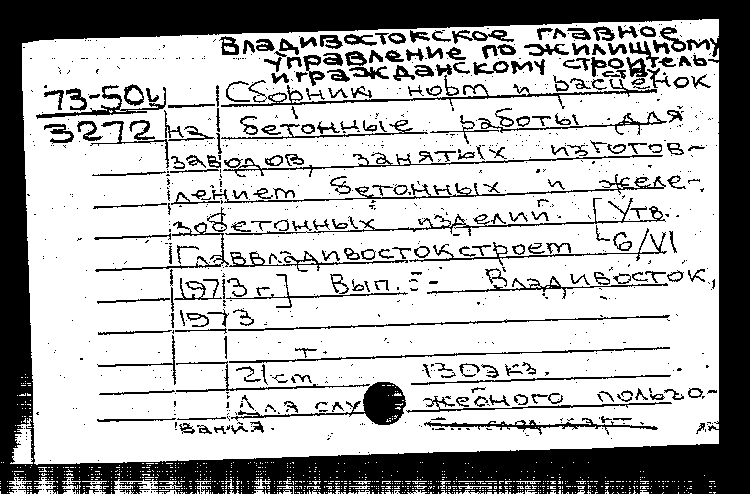 Владивостокское главное
управление по жилищному
и гражданскому строитель-
ству.
73-50k Сборник норм и расценок
3272 на бетонные работы для
заводов, занятых изготов-
лением бетонных и желе-
зобетонных изделий. [Утв.
Главвладивостокстроем 6/VI
1973 г.] Вып. - Владивосток,
1973.
т.
21 см 130 экз.
Для служебного пользо-
вания. См. след. карт.